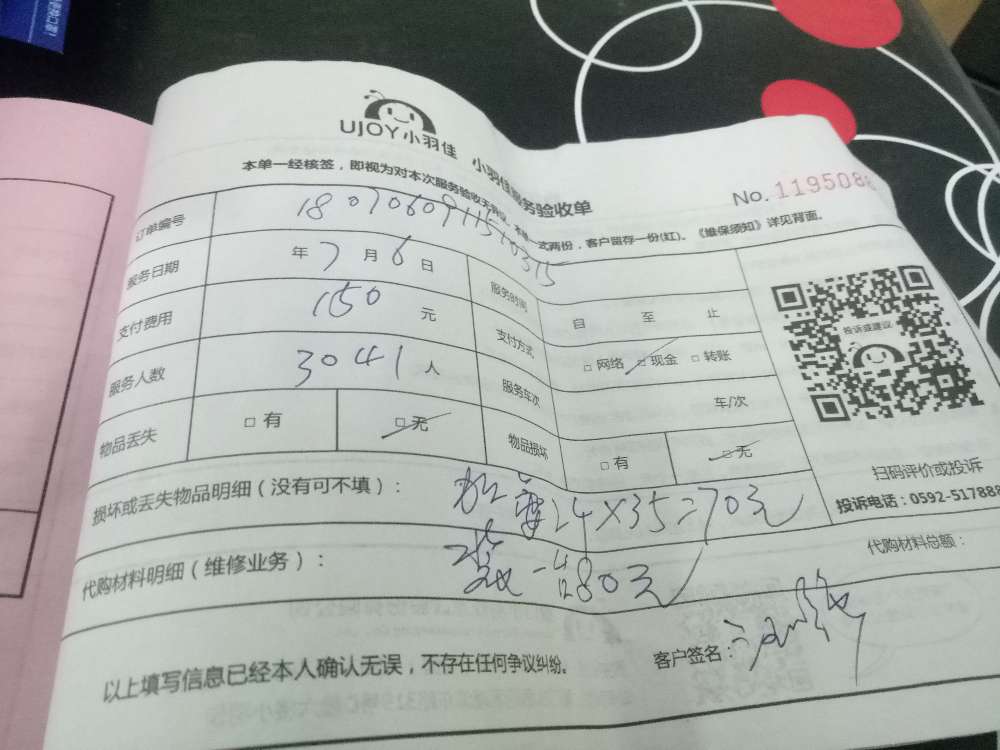 UJOY小羽佳 小羽佳服务验收单
No. 1195088
本单一经核签，即视为对本次服务验收无异议。本单一式两份，客户留存一份(红)。《维保须知》详见背面。
订单编号 1807060911510315
服务日期 年7月6日 服务时间 自 至 止
支付费用 150元 支付方式 □网络 □现金 □转账
服务人数 3041人 服务车次 车/次
物品丢失 □有 □无 物品损坏 □有 □无
投诉或建议
扫码评价或投诉
投诉电话：0592-517888
损坏或丢失物品明细（没有可不填）： 24X35=70元
代购材料明细（维修业务）： 一台80元
代购材料总额：
以上填写信息已经本人确认无误，不存在任何争议纠纷。 客户签名：